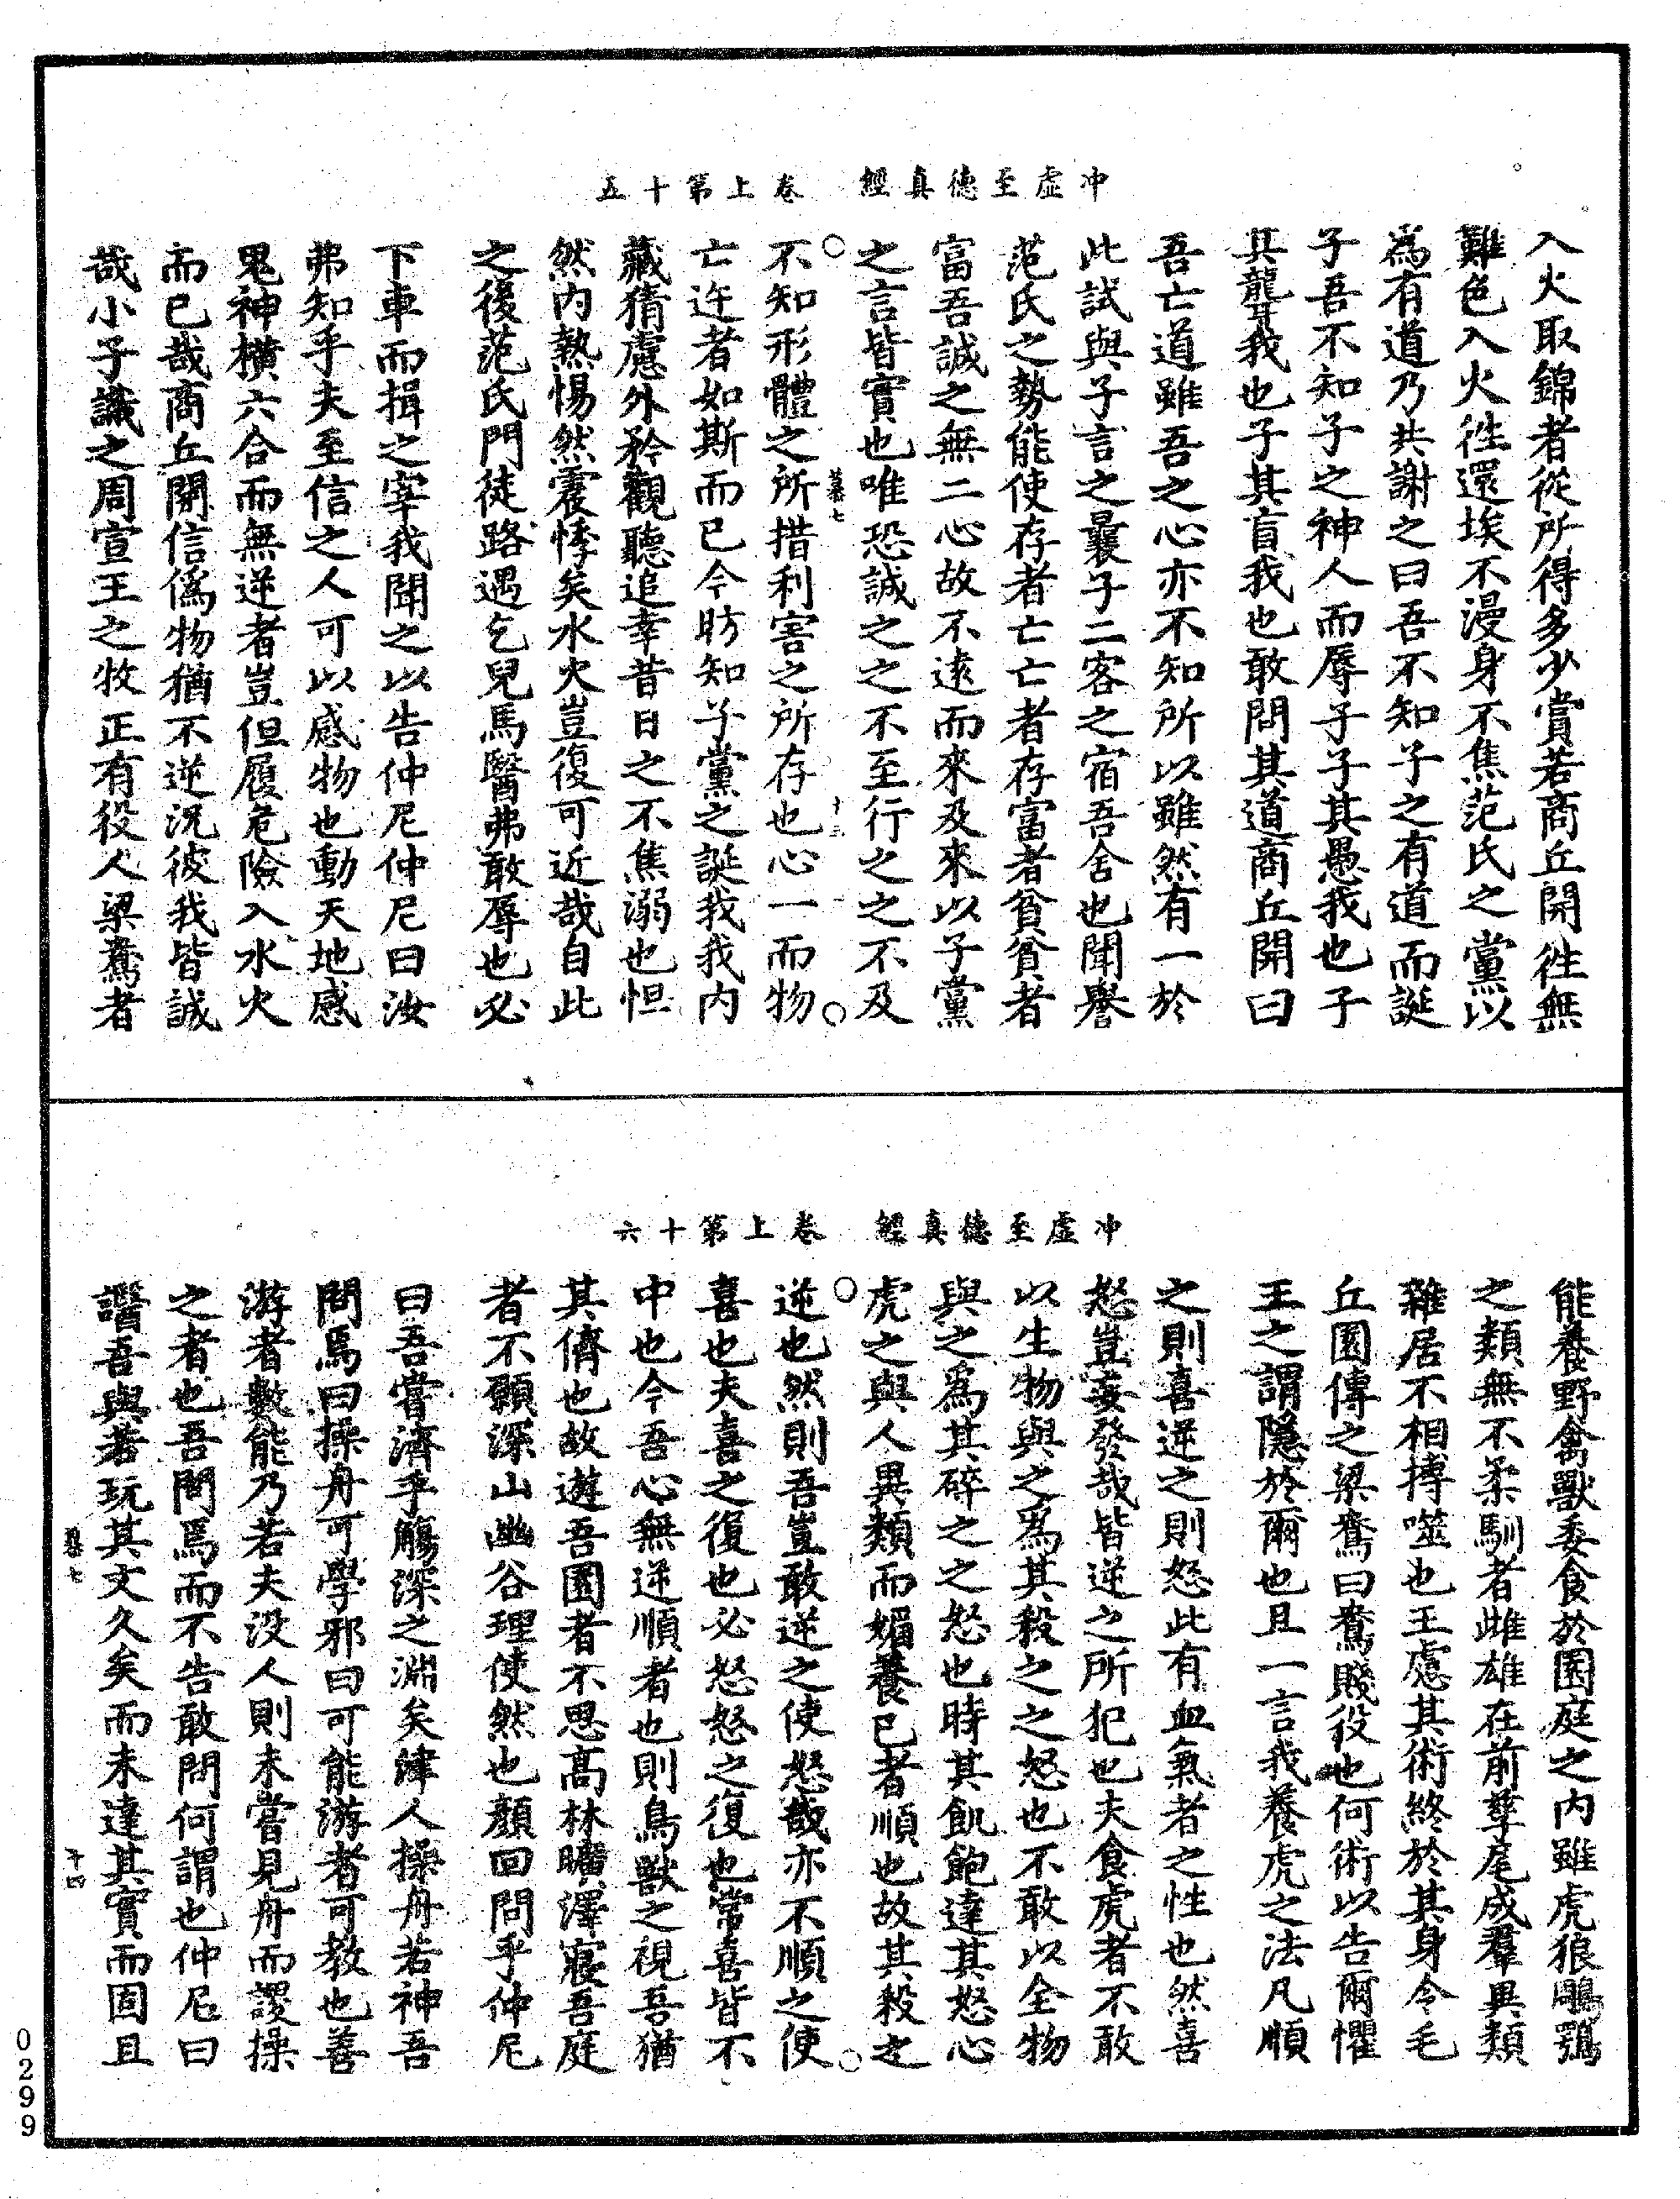 冲虛至德真經　卷上第十五
入火取錦者從所得多少賞若商丘開徃無
難色入火徃還埃不漫身不焦范氏之黨以
爲有道乃共謝之曰吾不知子之有道而誕
子吾不知子之神人而辱子子其愚我也子
其聾我也子其盲我也敢問其道商丘開曰
吾亡道雖吾之心亦不知所以雖然有一於
此試與子言之曩子二客之宿吾舍也聞譽
范氏之勢能使存者亡亡者存富者貧貧者
富吾誠之無二心故不遠而來及來以子黨
之言皆實也唯恐誠之之不至行之之不及
慕七　十三
不知形體之所措利害之所存也心一而物
亡迕者如斯而已今昉知子黨之誕我我內
藏猜慮外矜觀聽追幸昔日之不焦溺也怛
然內熱惕然震悸矣水火豈復可近哉自此
之後范氏門徒路遇乞兒馬醫弗敢辱也必
下車而揖之宰我聞之以告仲尼仲尼曰汝
弗知乎夫至信之人可以感物也動天地感
鬼神橫六合而無逆者豈但履危險入水火
而已哉商丘開信僞物猶不逆況彼我皆誠
哉小子識之周宣王之牧正有役人梁鴦者
冲虛至德真經　卷上第十六
能養野禽獸委食於園庭之內雖虎狼鵰鶚
之類無不柔馴者雌雄在前孳尾成羣異類
雜居不相搏噬也王慮其術終於其身令毛
丘園傳之梁鴦曰鴦賤役也何術以告爾懼
王之謂隱於爾也且一言我養虎之法凡順
之則喜逆之則怒此有血氣者之性也然喜
怒豈妄發哉皆逆之所犯也夫食虎者不敢
以生物與之爲其殺之之怒也不敢以全物
與之爲其碎之之怒也時其飢飽達其怒心
虎之與人異類而媚養己者順也故其殺之
逆也然則吾豈敢逆之使怒哉亦不順之使
喜也夫喜之復也必怒怒之復也常喜皆不
中也今吾心無逆順者也則鳥獸之視吾猶
其儕也故遊吾園者不思高林曠澤寢吾庭
者不願深山幽谷理使然也顏回問乎仲尼
曰吾嘗濟乎觴深之淵矣津人操舟若神吾
問焉曰操舟可學邪曰可能游者可教也善
游者數能乃若夫没人則未嘗見舟而謖操
之者也吾問焉而不告敢問何謂也仲尼曰
譆吾與若玩其文久矣而未達其實而固且
慕七　十四
0299